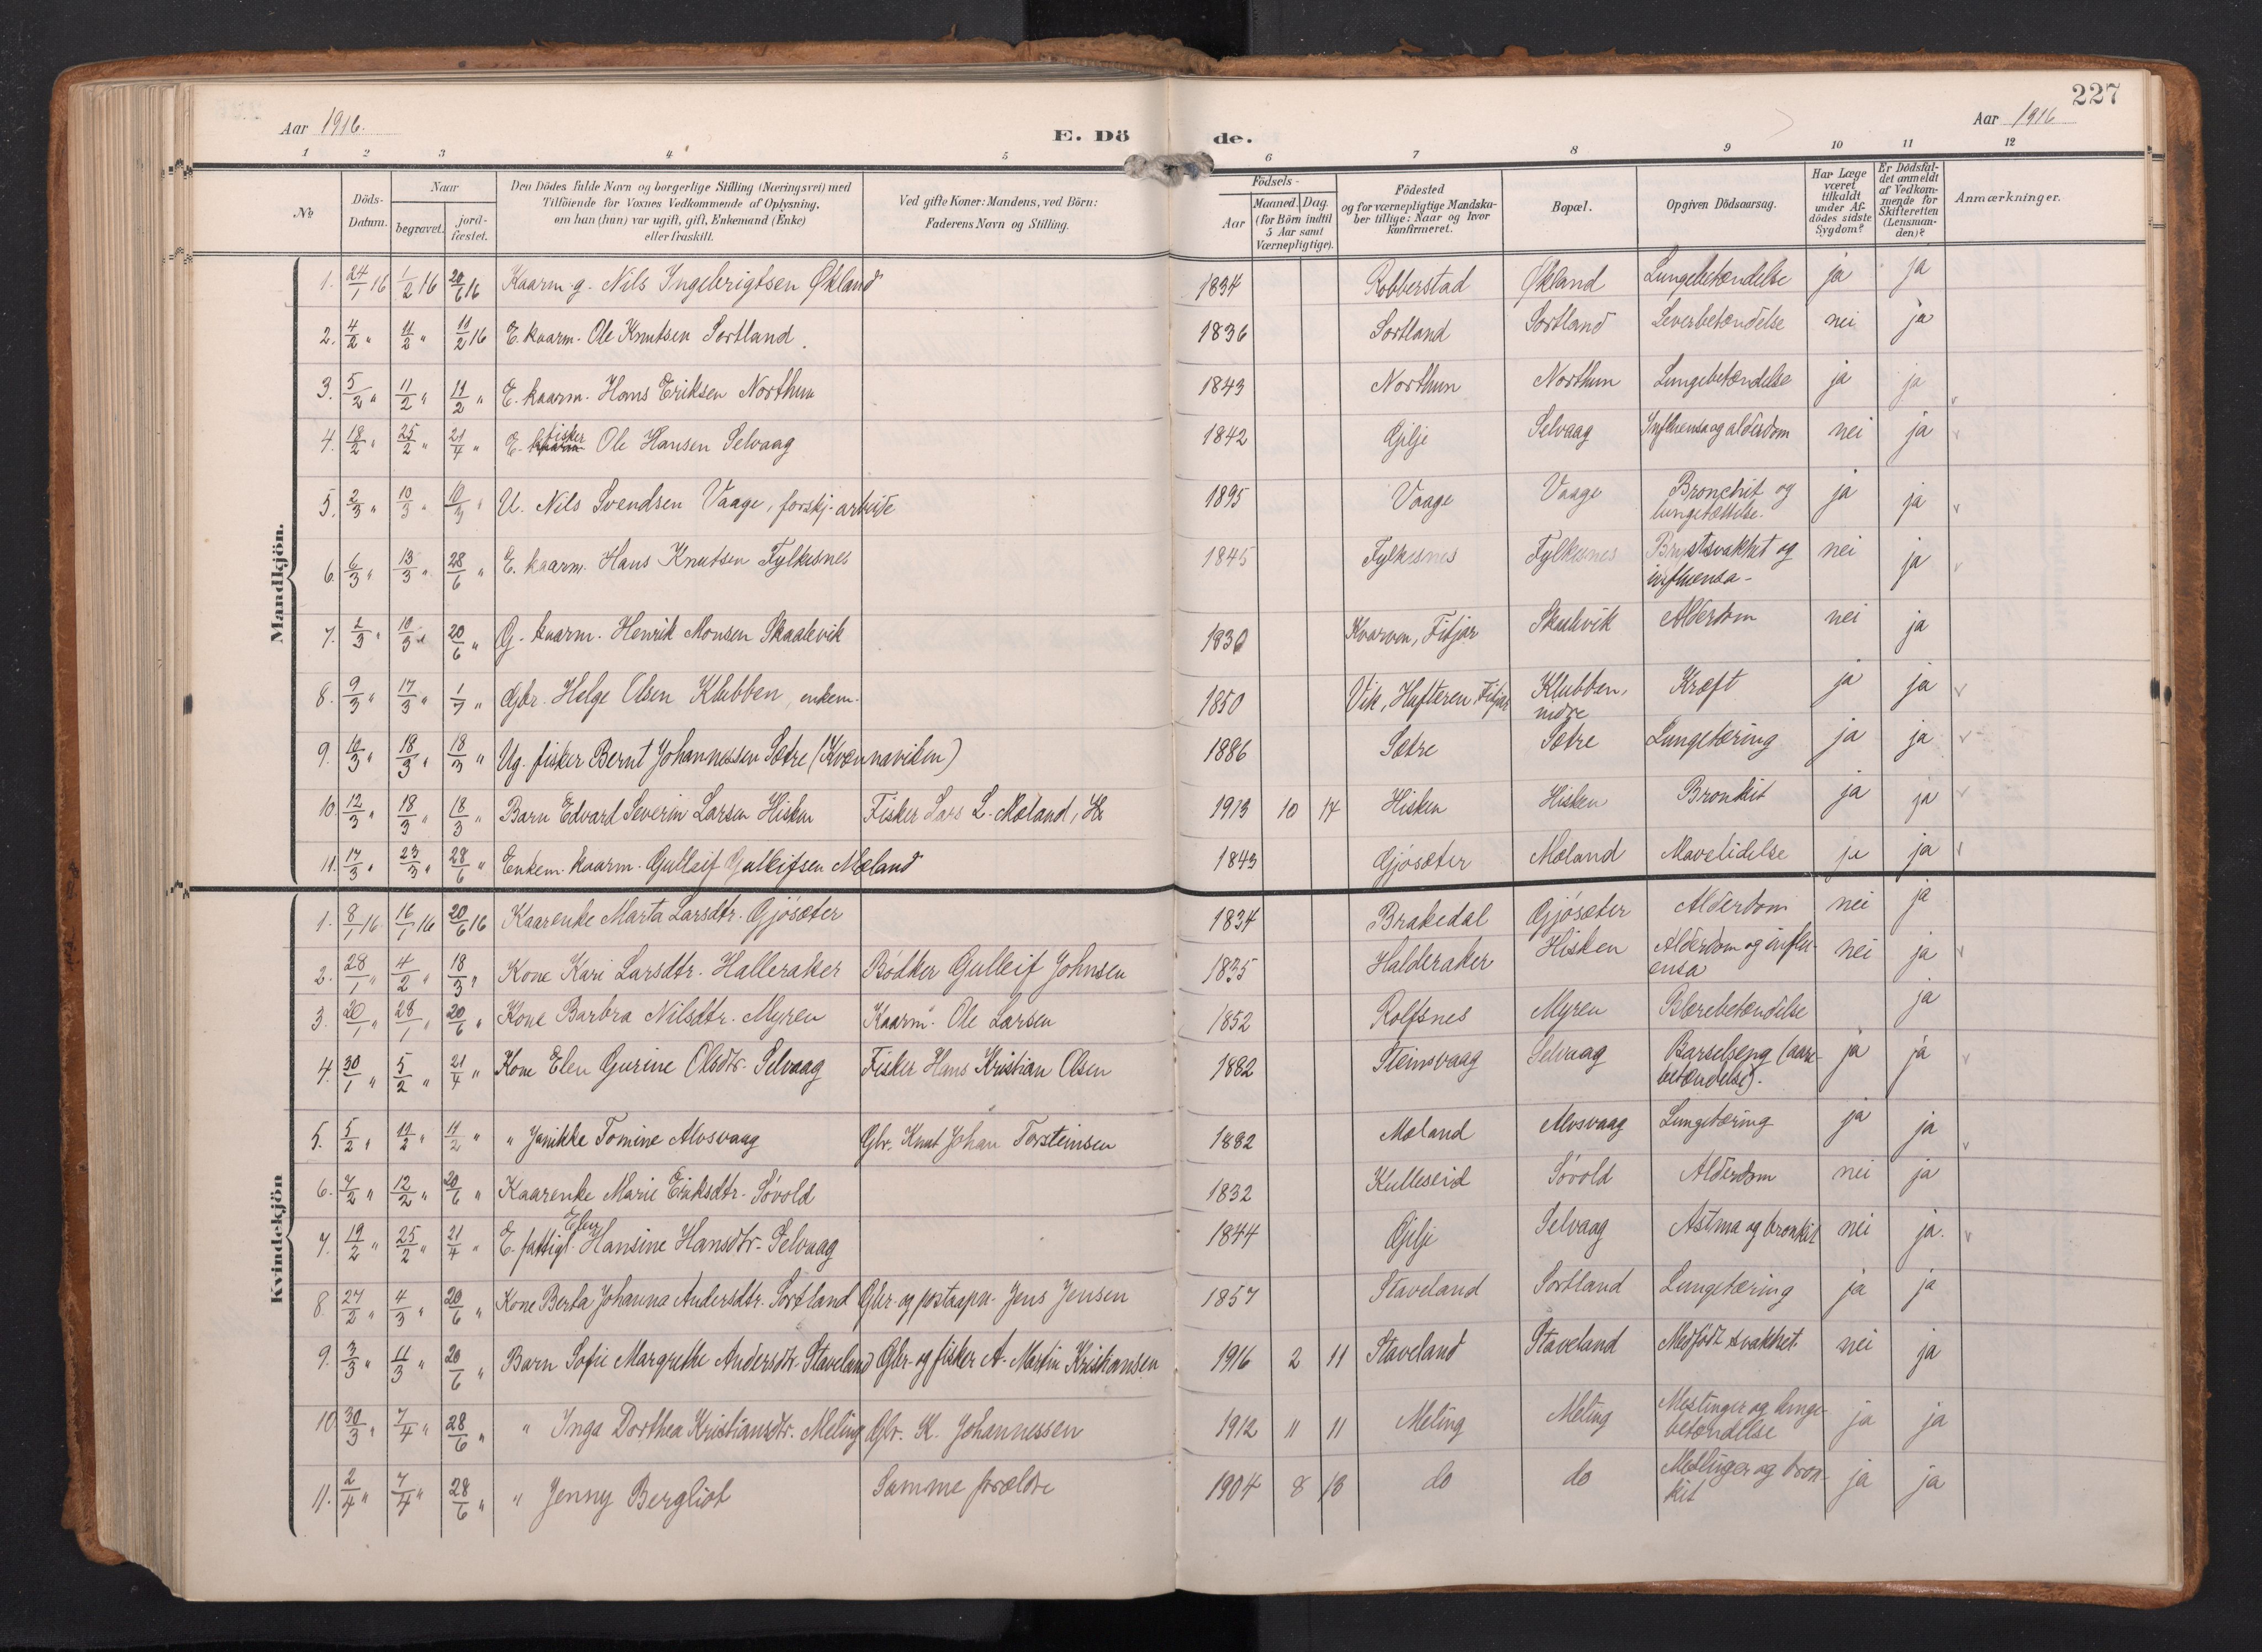 227
Aar 1916. E. Dö de. Aar 1916
1 2 3 4 5 6 7 8 9 10 11 12
No
Döds-Datum.
Naar
begravet.
jord-fæstet.
Den Dödes fulde Navn og borgerlige Stilling (Næringsvei) med
Tilföiende for Voxnes Vedkommende af Oplysning,
om han (hun) var ugift, gift, Enkemand (Enke)
eller fraskilt.
Ved gifte Koner: Mandens, ved Börn:
Faderens Navn og Stilling.
Födsels-
Aar
Maaned. Dag.
(for Börn indtil
5 Aar samt
Værnepligtige).
Födested
og for værnepligtige Mandska-
ber tillige: Naar og hvor
konfirmeret.
Bopæl.
Opgiven Dödsaarsag.
Har Læge
været
tilkaldt
under Af-
dödes sidste
Sygdom?
Er Dödsfal-
det anmeldt
af Vedkom-
mende for
Skifteretten
(Lensman-
den)?
Anmærkninger.
Mandkjön.
1. 24/1 16 1/2 16 20/6 16 Kaarm. g. Nils Ingebrigtsen Økland 1834 Robberstad Økland Lungebetændelse ja ja
2. 4/2 " 11/2 " 11/2 16 E. kaarm. Ole Knutsen Sortland. 1836 Sortland Sortland Leverbetændelse nei ja
3. 5/2 " 11/2 " 11/2 " E. kaarm. Hans Eriksen Northun 1843 Northun Northun Lungebetændelse ja ja
4. 18/2 " 25/2 " 21/4 " E. fisker Ole Hansen Selvaag 1842 Gjilje Selvaag Influensa og alderdom nei ja
5. 2/3 " 10/3 " 10/3 " U. Nils Svendsen Vaage, forskj. arbeide 1895 Vaage Vaage Bronchit og ja ja
lungetættelse.
6. 6/3 " 13/3 " 28/6 " E. kaarm. Hans Knutsen Fylkesnes 1845 Fylkesnes Fylkesnes Brystsvakhet og nei ja
influensa-
7. 2/3 " 10/3 " 20/6 " G. kaarm. Henrik Monsen Skaalevik 1830 Kvarven, Fitjar Skaalevik Alderdom nei ja
8. 9/3 " 17/3 " 1/7 " Gbr. Helge Olsen Klubben, enkem. 1850 Vik, Hufteren, Fitjar Klubben, Kræft ja ja
nidre
9. 10/3 " 18/3 " 18/3 " Ug. fisker Bernt Johannessen Sætre (Kvernaviken) 1886 Sætre Sætre Lungetæring ja ja
10. 12/3 " 18/3 " 18/3 " Barn Edvard Severin Larsen Hisken Fisker Lars L. Mæland, H. 1913 10 17 Hisken Hisken Bronkit ja ja
11. 17/3 " 23/3 " 28/6 " Enkem. kaarm. Gulleif Gulleifsen Mæland 1843 Gjøsæter Mæland Mavelidelse ja ja
Kvindekjön
1. 8/1 16 16/1 16 20/6 16 Kaarenke Marta Larsdtr. Gjøsæter 1834 Brakedal Gjøsæter Alderdom nei ja
2. 28/1 " 4/2 " 18/3 " Kone Kari Larsdtr. Halleraker Bødker Gulleif Johnsen 1835 Halderaker Hisken Alderdom og influ- nei ja
ensa
3. 20/1 " 28/1 " 20/6 " Kone Barbra Nilsdtr. Myren Kaarm. Ole Larsen 1852 Rolfsnes Myren Blærebetændelse ja
4. 30/1 " 5/2 " 21/4 " Kone Elen Gurine Olsdtr. Selvaag Fisker Hans Kristian Olsen 1882 Steinsvaag Selvaag Barselseng (aare- ja ja
betændelse).
5. 5/2 " 14/2 " 14/2 " " Janikke Tomine Alvsvaag Gbr. Knut Johan Torsteinsen 1882 Mæland Alvsvaag Lungetæring ja ja
6. 7/2 " 12/2 " 20/6 " Kaarenke Marie Eriksdtr. Søvold 1832 Kulleseid Søvold Alderdom nei ja
7. 19/2 " 25/2 " 21/4 " E. fattigl. Elen Hansine Hansdtr. Selvaag 1844 Gjilje Selvaag Astma og bronkit nei ja.
8. 27/2 " 4/3 " 20/6 " Kone Berta Johanna Andersdtr. Sortland Gbr. og postaapn. Jens Jensen 1857 Staveland Sortland Lungetæring ja ja
9. 3/3 " 11/3 " 20/6 " Barn Sofie Margrethe Andersdtr. Staveland Gbr. og fisker A. Martin Kristiansen 1916 2 11 Staveland Staveland Medfødt svakhet. nei ja
10. 30/3 " 7/4 " 28/6 " " Inga Dorthea Kristiansdtr. Meling Gbr. K. Johannessen 1912 11 11 Meling Meling Meslinger og lunge- ja ja
betændelse
11. 2/4 " 7/4 " 28/6 " " Jenny Bergliot Samme forældre 1904 8 13 do do Meslinger og bron- ja ja
kit